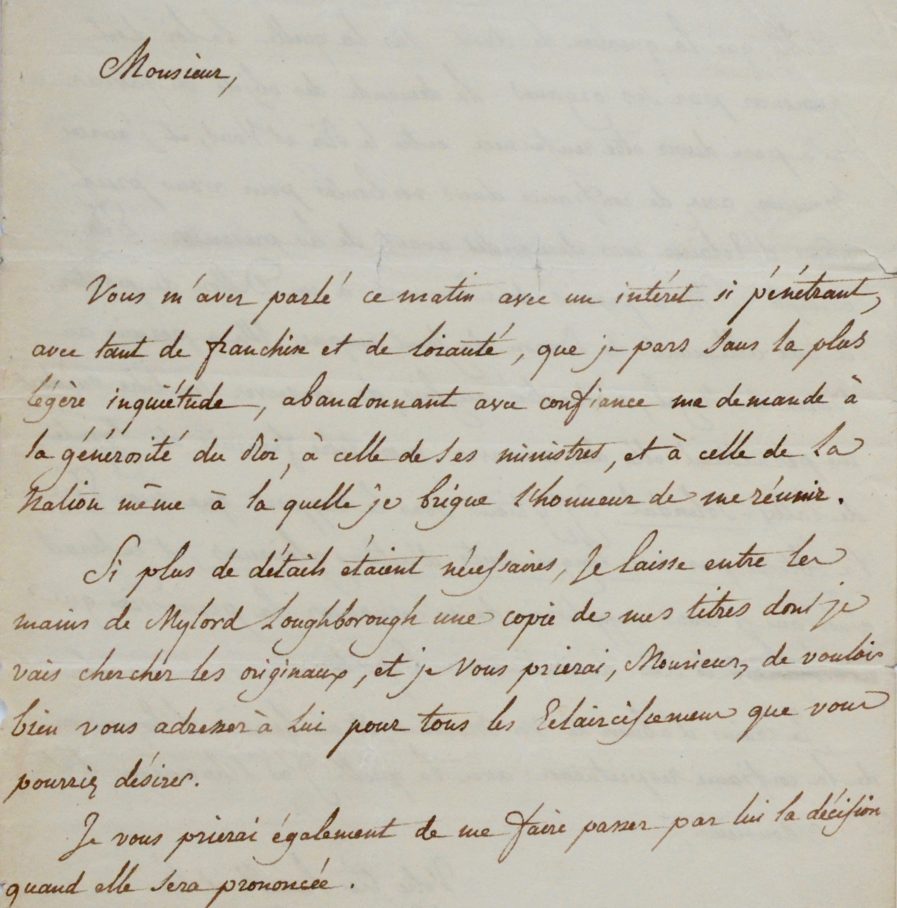 Monsieur,
Vous m'avez parlé ce matin avec un intéret si pénétrant,
avec tant de franchise et de loiauté, que je pars sans la plus
légère inquiétude, abandonnant avec confiance ma demande à
la générosité du Roi, à celle de ses ministres, et à celle de la
Nation même à la quelle je brigue l'honneur de me réunir.
Si plus de détails étaient nécessaires, Je laisse entre les
mains de Mylord Loughborough une copie de mes titres dont je
vais chercher les originaux, et je Vous prierai, Monsieur, de vouloir
bien vous adresser à Lui pour tous les Eclaircissemens que vous
pourriez désirer.
Je vous prierai également de me faire passer par lui la décision
quand elle sera prononcée.